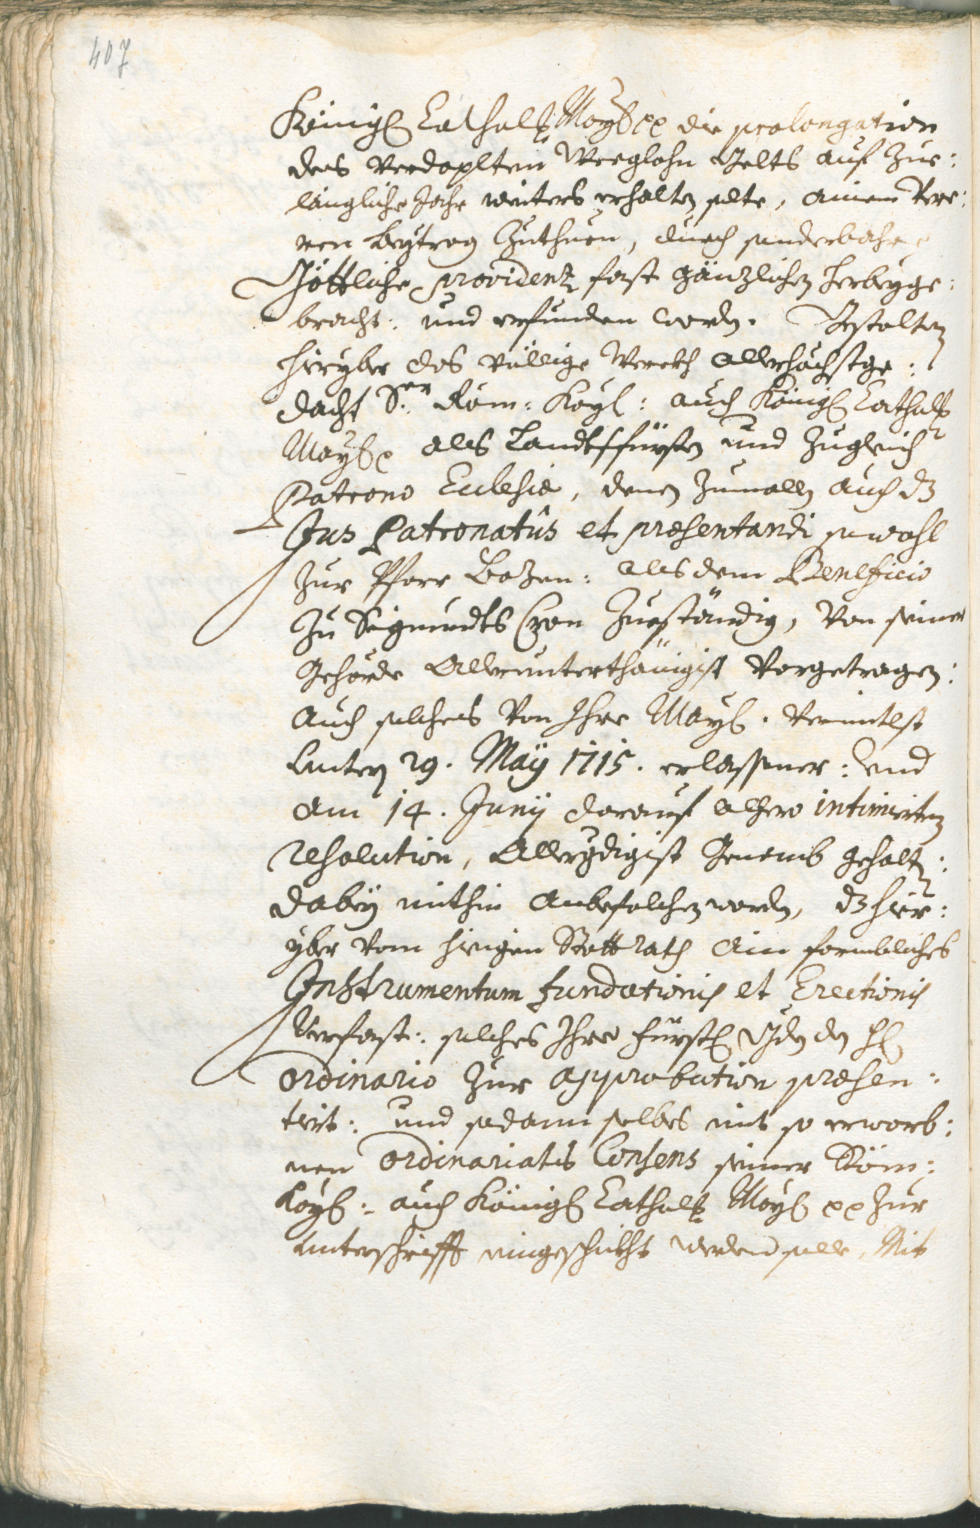 407
Königl Cathol Mayt pp die prolongation
des verdoplten Weeglohn Gelts auf zue:
längliche Jahr weiters erhalten solte, ainem Peee:
nen beytrag zuthuen, durch sonderbahre
Göttliche providenz fast gänzlichen herbeyge:
bracht: und erfunden wordn. Gestalten
hieryber das völlige Werckh allerhöchstge:
dacht Sr Röm: Kayl: auch Königl Cathol
Mayt p als Landtsfürsten und zugleich
Patrono Ecclesiæ, denen zumallen auch dz
Jus Patronatûs et præsentandi sowohl
zur Pfarr Bozen: als dem Beneficio
zu Sigmundts Cron zueständig, von seiner
Gehörde Allerunterthänigist vorgetragen:
auch solches von Ihre Mayl. vermitlst
unterm 29. Maÿ 1715. erlassner: und
am 14. Junij darauf alhero intimierten
resolution, Allergdigist Genemb gehalten:
dabeÿ mithin anbefolchen worden, dz hier:
yber vom hiesigen Stattrath ein formbliches
Instrumentum fundationis et Erectionis
Verfast: solches Ihro Fürstl Gdn dn Hl
ordinario zur approbation præsen:
tirt: und sodann selbes mit so erworb:
nen Ordinariats Consens seiner Röm:
Kayl: auch Königl Cathol Mayl pp zur
unterschrifft eingeschickht werden solle. Mit